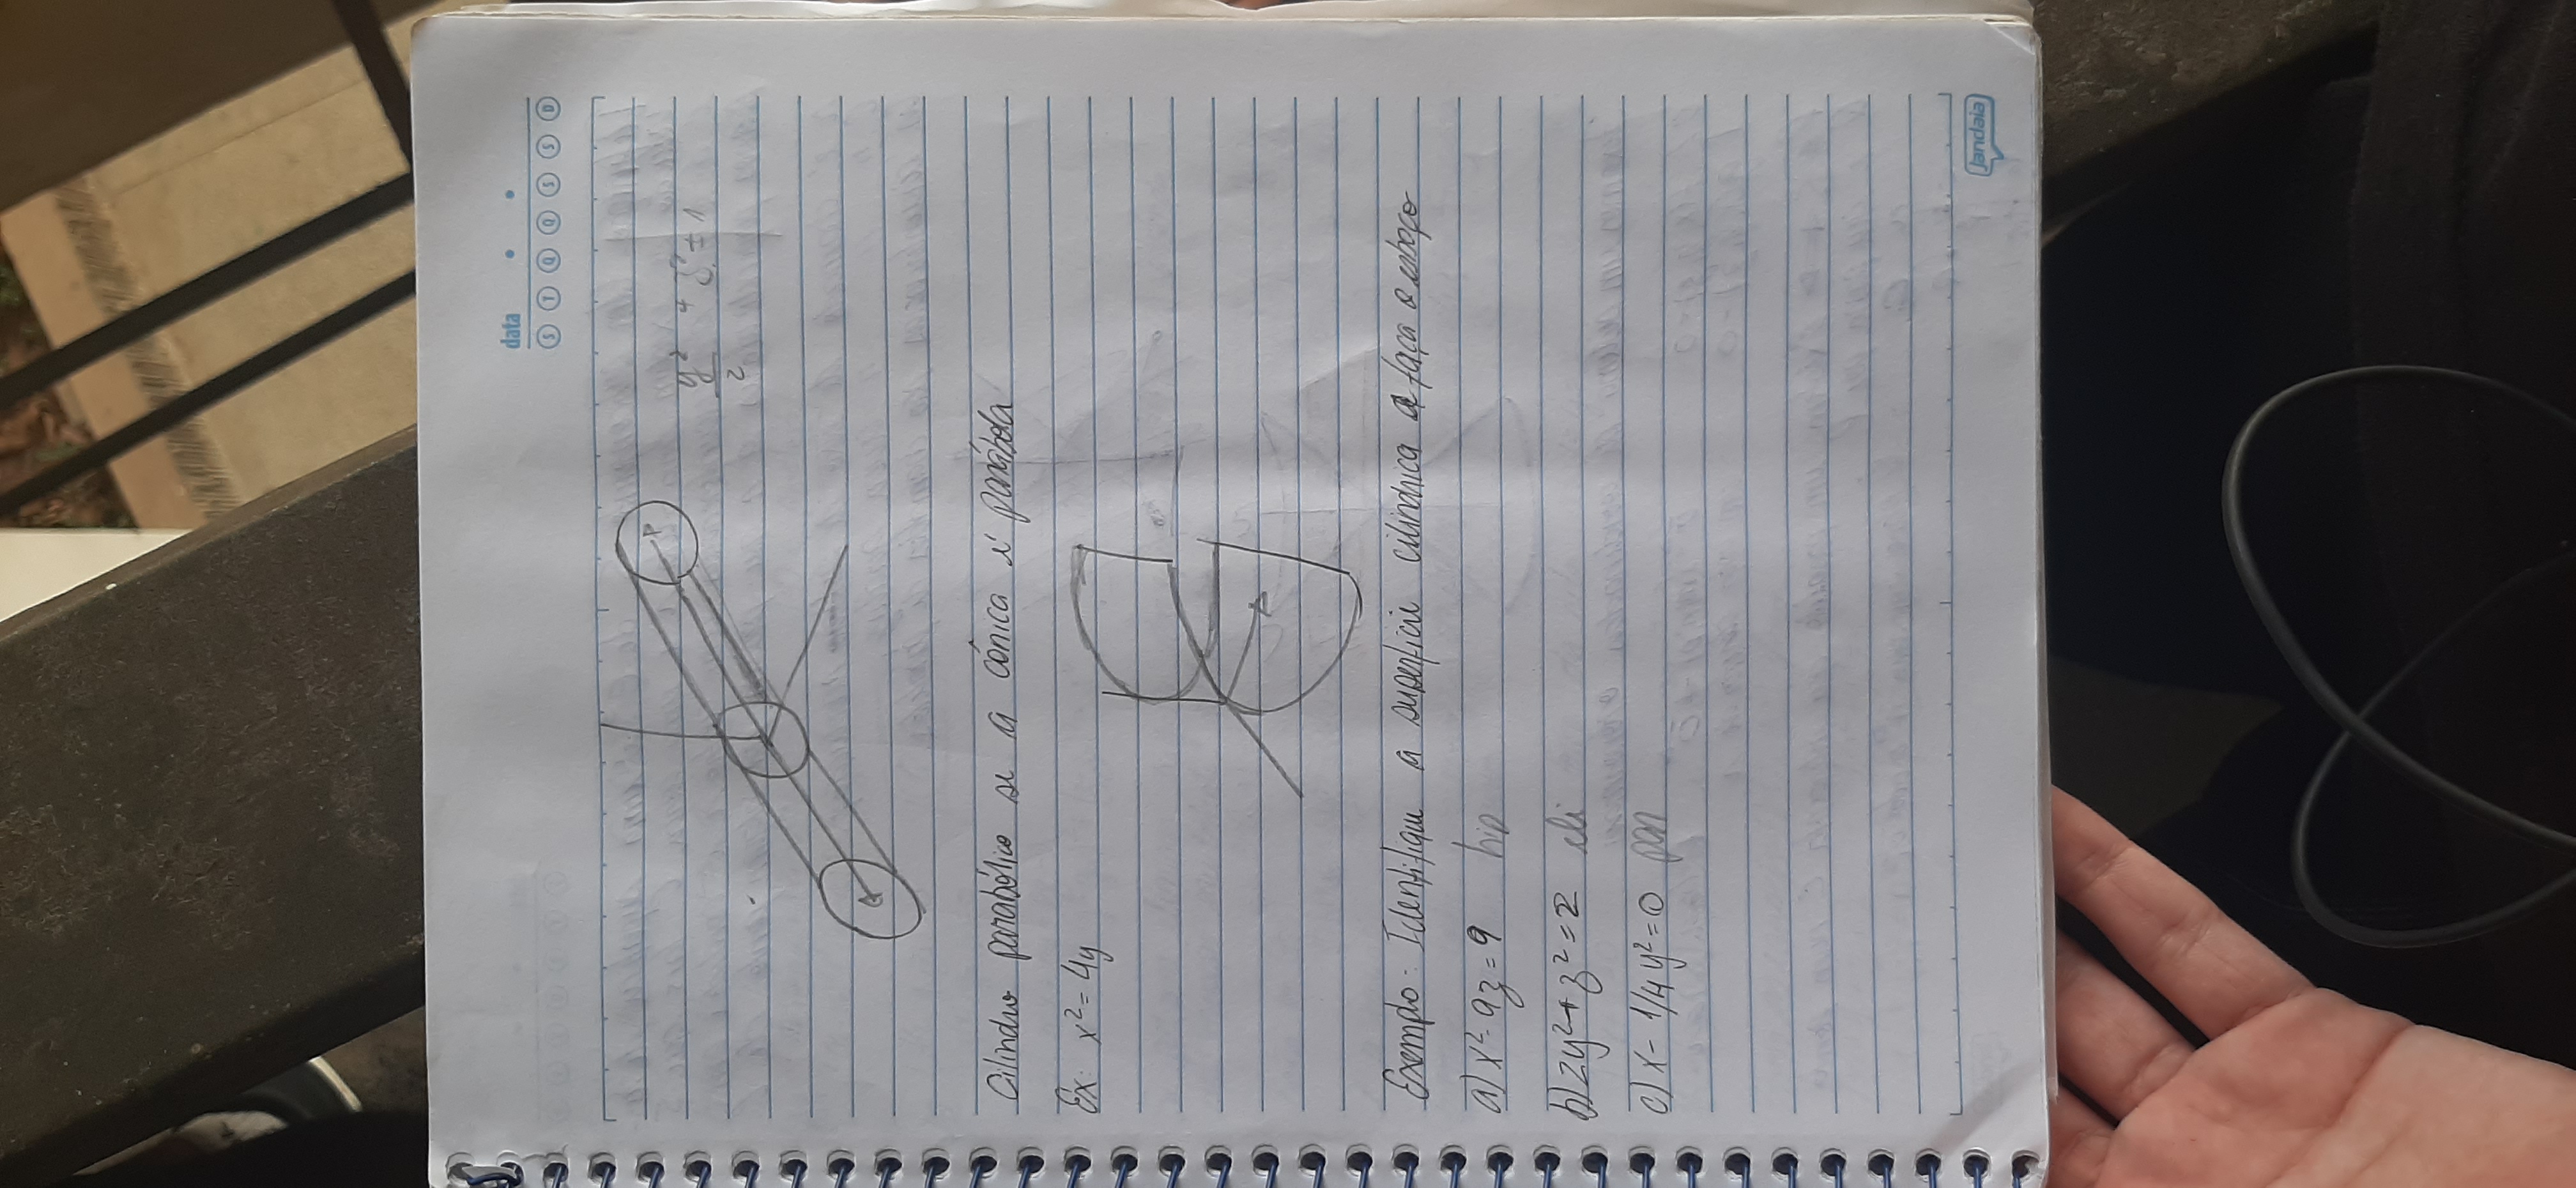 data
S T Q Q S S D
y²/2 + z² = 1
Cilindro parabólico se a cônica é parábola
Ex: x² = 4y
Exemplo: Identifique a superfície cilíndrica e faça o esboço
a) x² - 9z = 9 hip
b) 2y² + z² = 2 eli
c) x - 1/4 y² = 0 par
Jandaia